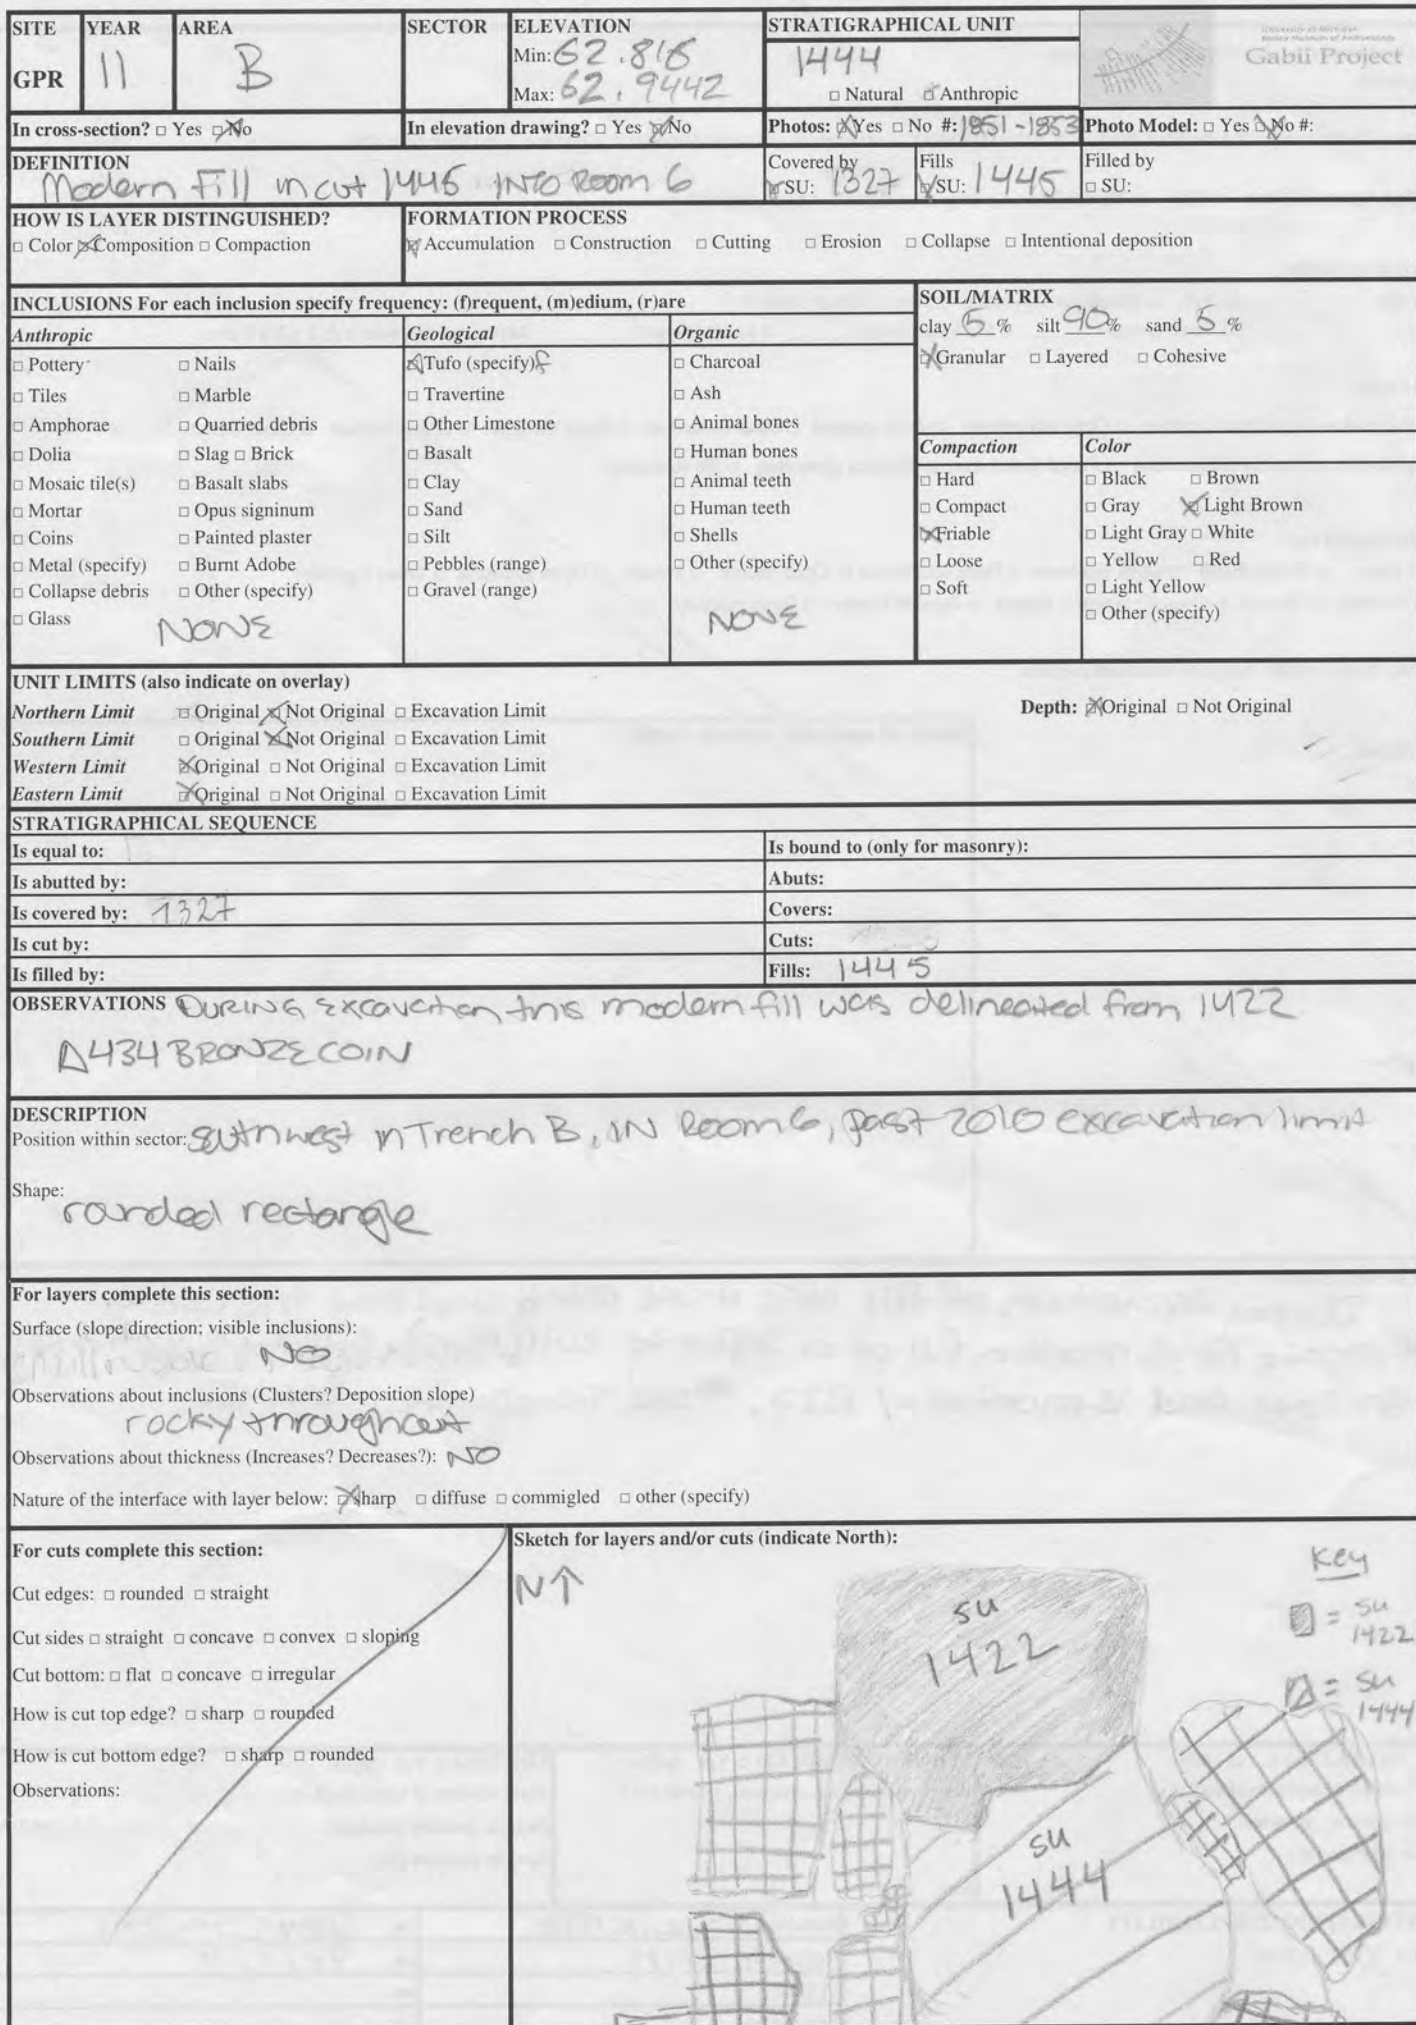 SITE YEAR AREA SECTOR ELEVATION STRATIGRAPHICAL UNIT
GPR 11 B Min: 62.816 1444
Max: 62.9442 □ Natural ☒ Anthropic
Gabii Project
In cross-section? □ Yes ☒ No In elevation drawing? □ Yes ☒ No Photos: ☒ Yes □ No #: 1851-1853 Photo Model: □ Yes ☒ No #:
DEFINITION Covered by Fills Filled by
Modern Fill in cut 1445 INTO Room 6 ☒ SU: 1327 ☒ SU: 1445 □ SU:
HOW IS LAYER DISTINGUISHED? FORMATION PROCESS
□ Color ☒ Composition □ Compaction ☒ Accumulation □ Construction □ Cutting □ Erosion □ Collapse □ Intentional deposition
INCLUSIONS For each inclusion specify frequency: (f)requent, (m)edium, (r)are
Anthropic
□ Pottery □ Nails
□ Tiles □ Marble
□ Amphorae □ Quarried debris
□ Dolia □ Slag □ Brick
□ Mosaic tile(s) □ Basalt slabs
□ Mortar □ Opus signinum
□ Coins □ Painted plaster
□ Metal (specify) □ Burnt Adobe
□ Collapse debris □ Other (specify)
□ Glass
NONE
Geological
☒ Tufo (specify) f
□ Travertine
□ Other Limestone
□ Basalt
□ Clay
□ Sand
□ Silt
□ Pebbles (range)
□ Gravel (range)
Organic
□ Charcoal
□ Ash
□ Animal bones
□ Human bones
□ Animal teeth
□ Human teeth
□ Shells
□ Other (specify)
NONE
SOIL/MATRIX
clay 5 % silt 90 % sand 5 %
☒ Granular □ Layered □ Cohesive
Compaction
□ Hard
□ Compact
☒ Friable
□ Loose
□ Soft
Color
□ Black □ Brown
□ Gray ☒ Light Brown
□ Light Gray □ White
□ Yellow □ Red
□ Light Yellow
□ Other (specify)
UNIT LIMITS (also indicate on overlay)
Northern Limit □ Original ☒ Not Original □ Excavation Limit Depth: ☒ Original □ Not Original
Southern Limit □ Original ☒ Not Original □ Excavation Limit
Western Limit ☒ Original □ Not Original □ Excavation Limit
Eastern Limit ☒ Original □ Not Original □ Excavation Limit
STRATIGRAPHICAL SEQUENCE
Is equal to: Is bound to (only for masonry):
Is abutted by: Abuts:
Is covered by: 1327 Covers:
Is cut by: Cuts:
Is filled by: Fills: 1445
OBSERVATIONS DURING Excavation this modern fill was delineated from 1422
△434 BRONZE COIN
DESCRIPTION
Position within sector: southwest in Trench B, IN Room 6, past 2010 excavation limit
Shape:
rounded rectangle
For layers complete this section:
Surface (slope direction; visible inclusions):
NO
Observations about inclusions (Clusters? Deposition slope)
rocky throughout
Observations about thickness (Increases? Decreases?): NO
Nature of the interface with layer below: ☒ sharp □ diffuse □ commigled □ other (specify)
For cuts complete this section:
Cut edges: □ rounded □ straight
Cut sides □ straight □ concave □ convex □ sloping
Cut bottom: □ flat □ concave □ irregular
How is cut top edge? □ sharp □ rounded
How is cut bottom edge? □ sharp □ rounded
Observations:
Sketch for layers and/or cuts (indicate North):
N↑
SU
1422
SU
1444
Key
= SU
1422
= SU
1444